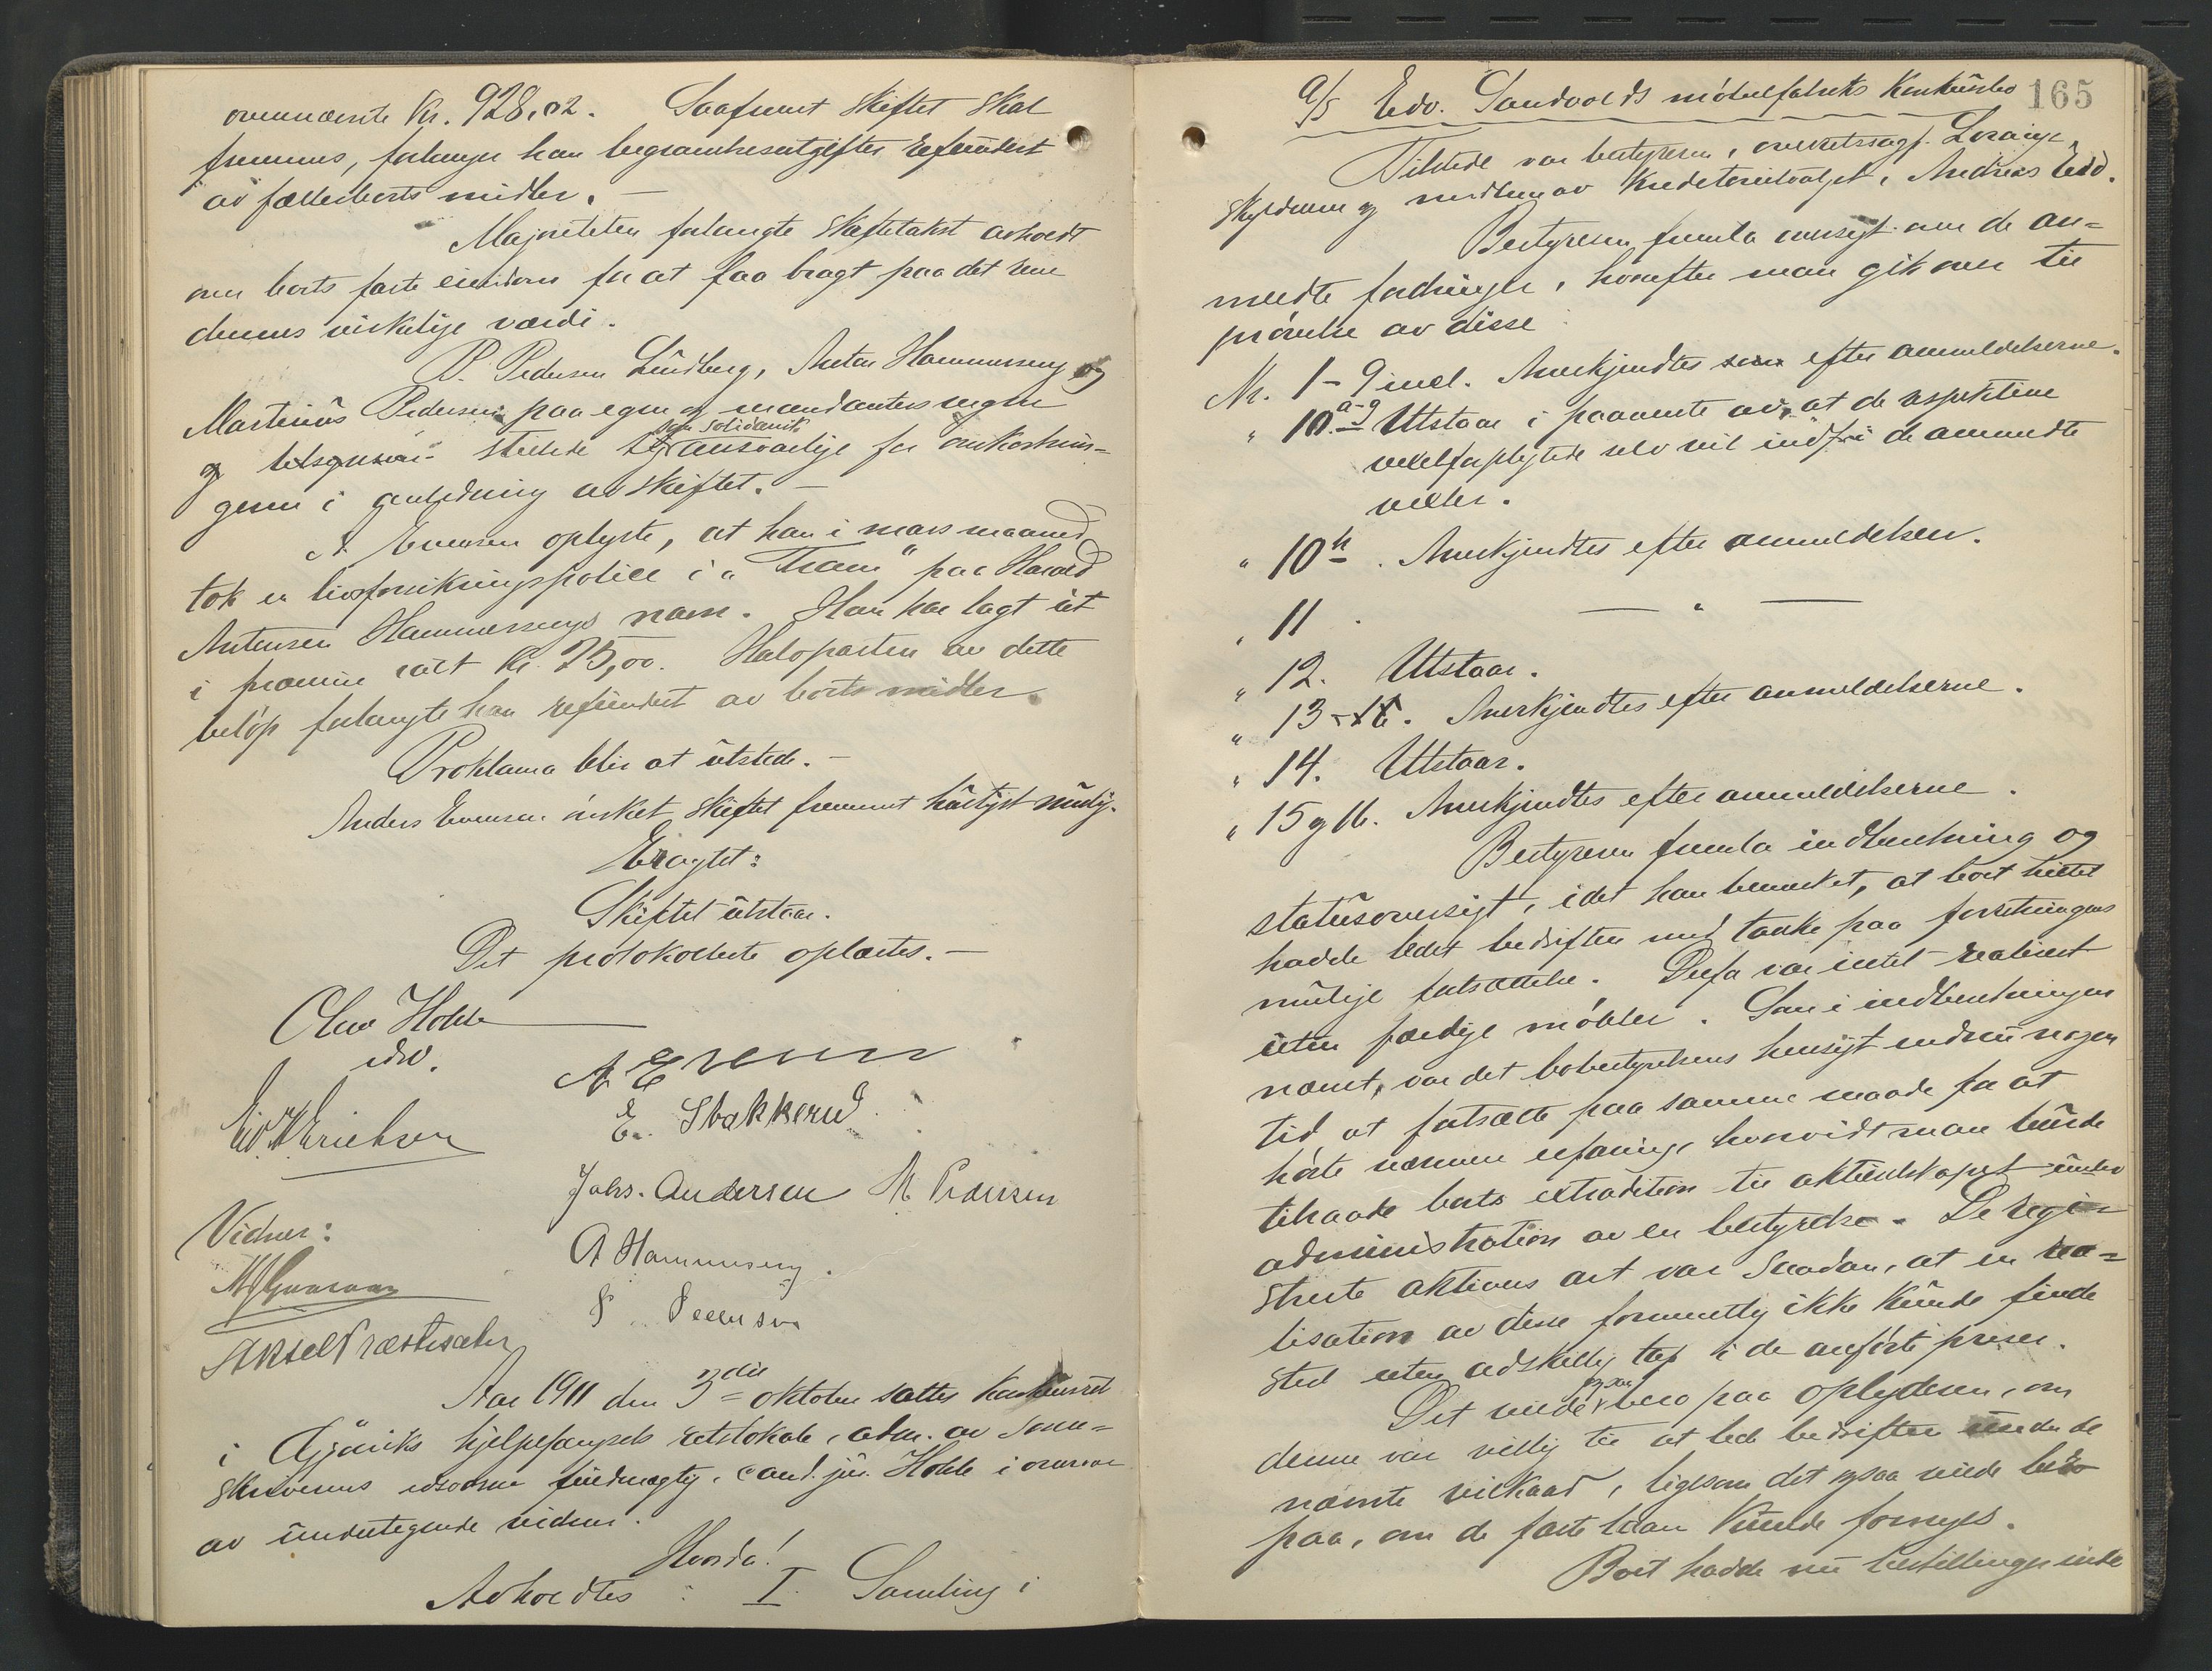 ovennævnte Kr. 928,02. Saafremt skiftet skal
fremmes, forlanger han begravelsesutgifter refundert
av fællesboets midler. —
Majoriteten forlangte skiftetakst avholdt
over boets faste eiendom for at faa bragt paa det rene
dennes virkelige værdi.
P. Pedersen Lundberg, Anton Hammerseng og
Martinius Pedersen paa egne og mandanters vegne
og stillede sig som solidarisk ansvarlige for omkostnin-
gerne i anledning av skiftet. —
A. Evensen oplyste, at han i mars maaned
tok en livsforsikringspolice i "Fram" paa Harald
Antonsen Hammersengs navn. Han har lagt ut
i præmie ialt kr. 75,00. Halvparten av dette
beløp forlangte han refundert av boets midler.
Proklama blir at utstede. —
Anders Evensen ønsket skiftet fremmet hurtigst mulig.
Eragtet:
Skiftet utstaar.
Det protokollerte oplæstes. —
Olav Holde
edsv.
A Evensen
Ed. M. Erichsen
E. Stakkerud
Johs. Andersen M Pedersen
Vidner:
A Hammerseng.
P. Pedersen
Aksel Præstesæter
Aar 1911 den 3die oktober sattes konkursret
i Gjøviks hjelpefængsels retslokale, adm. av soren-
skriverens edsvorne fuldmægtig, cand. jur. Holde i overvær
av undertegnede vidner.
Hvorda!
Avholdtes: I. Samling i
165
A/S Edv. Sandvolds møbelfabriks konkursbo
Tilstede var bestyreren, overretssagf. Lorange,
skyldneren og medlem av kreditorutvalget, Andreas Lund.
Bestyreren fremla oversigt over de an-
meldte fordringer, hvorefter man gik over til
prøvelse av disse:
Nr. 1-9 incl. Anerkjendtes efter anmeldelserne.
" 10 a-g Utstaar i paavente av, at de respektive
vexelforpligtede selv vil indfri de anmeldte
vexler.
" 10 h. Anerkjendtes efter anmeldelsen.
" 11. — " —
" 12. Utstaar.
" 13. Anerkjendtes efter anmeldelserne.
" 14. Utstaar.
" 15 og 16. Anerkjendtes efter anmeldelserne.
Bestyreren fremla indberetning og
statusoversigt, idet han bemerket, at boet hittil
hadde ledet bedriften med tanke paa forretningens
mulige fortsættelse. Derfor var intet realisert
uten færdige møbler. Som i indberetningen
nævnt, var det bobestyrelsens hensigt endnu nogen
tid at fortsætte paa samme maade for at
høste nærmere erfaring, hvorvidt man burde
tilraade boets extradition til aktieselskapet under
administration av en bestyrelse. De regi-
strerte aktivers art var saadan, at en rea-
lisation av disse formentlig ikke kunde finde
sted uten adskillig tap i de anførte priser.
Det vilde ogsaa bero paa oplyderen, om
denne var villig til at lede bedriften under de
nævnte vilkaar, ligesom det ogsaa vilde bero
paa, om de faste laan kunde fornyes.
Boet hadde nu bestillinger inde